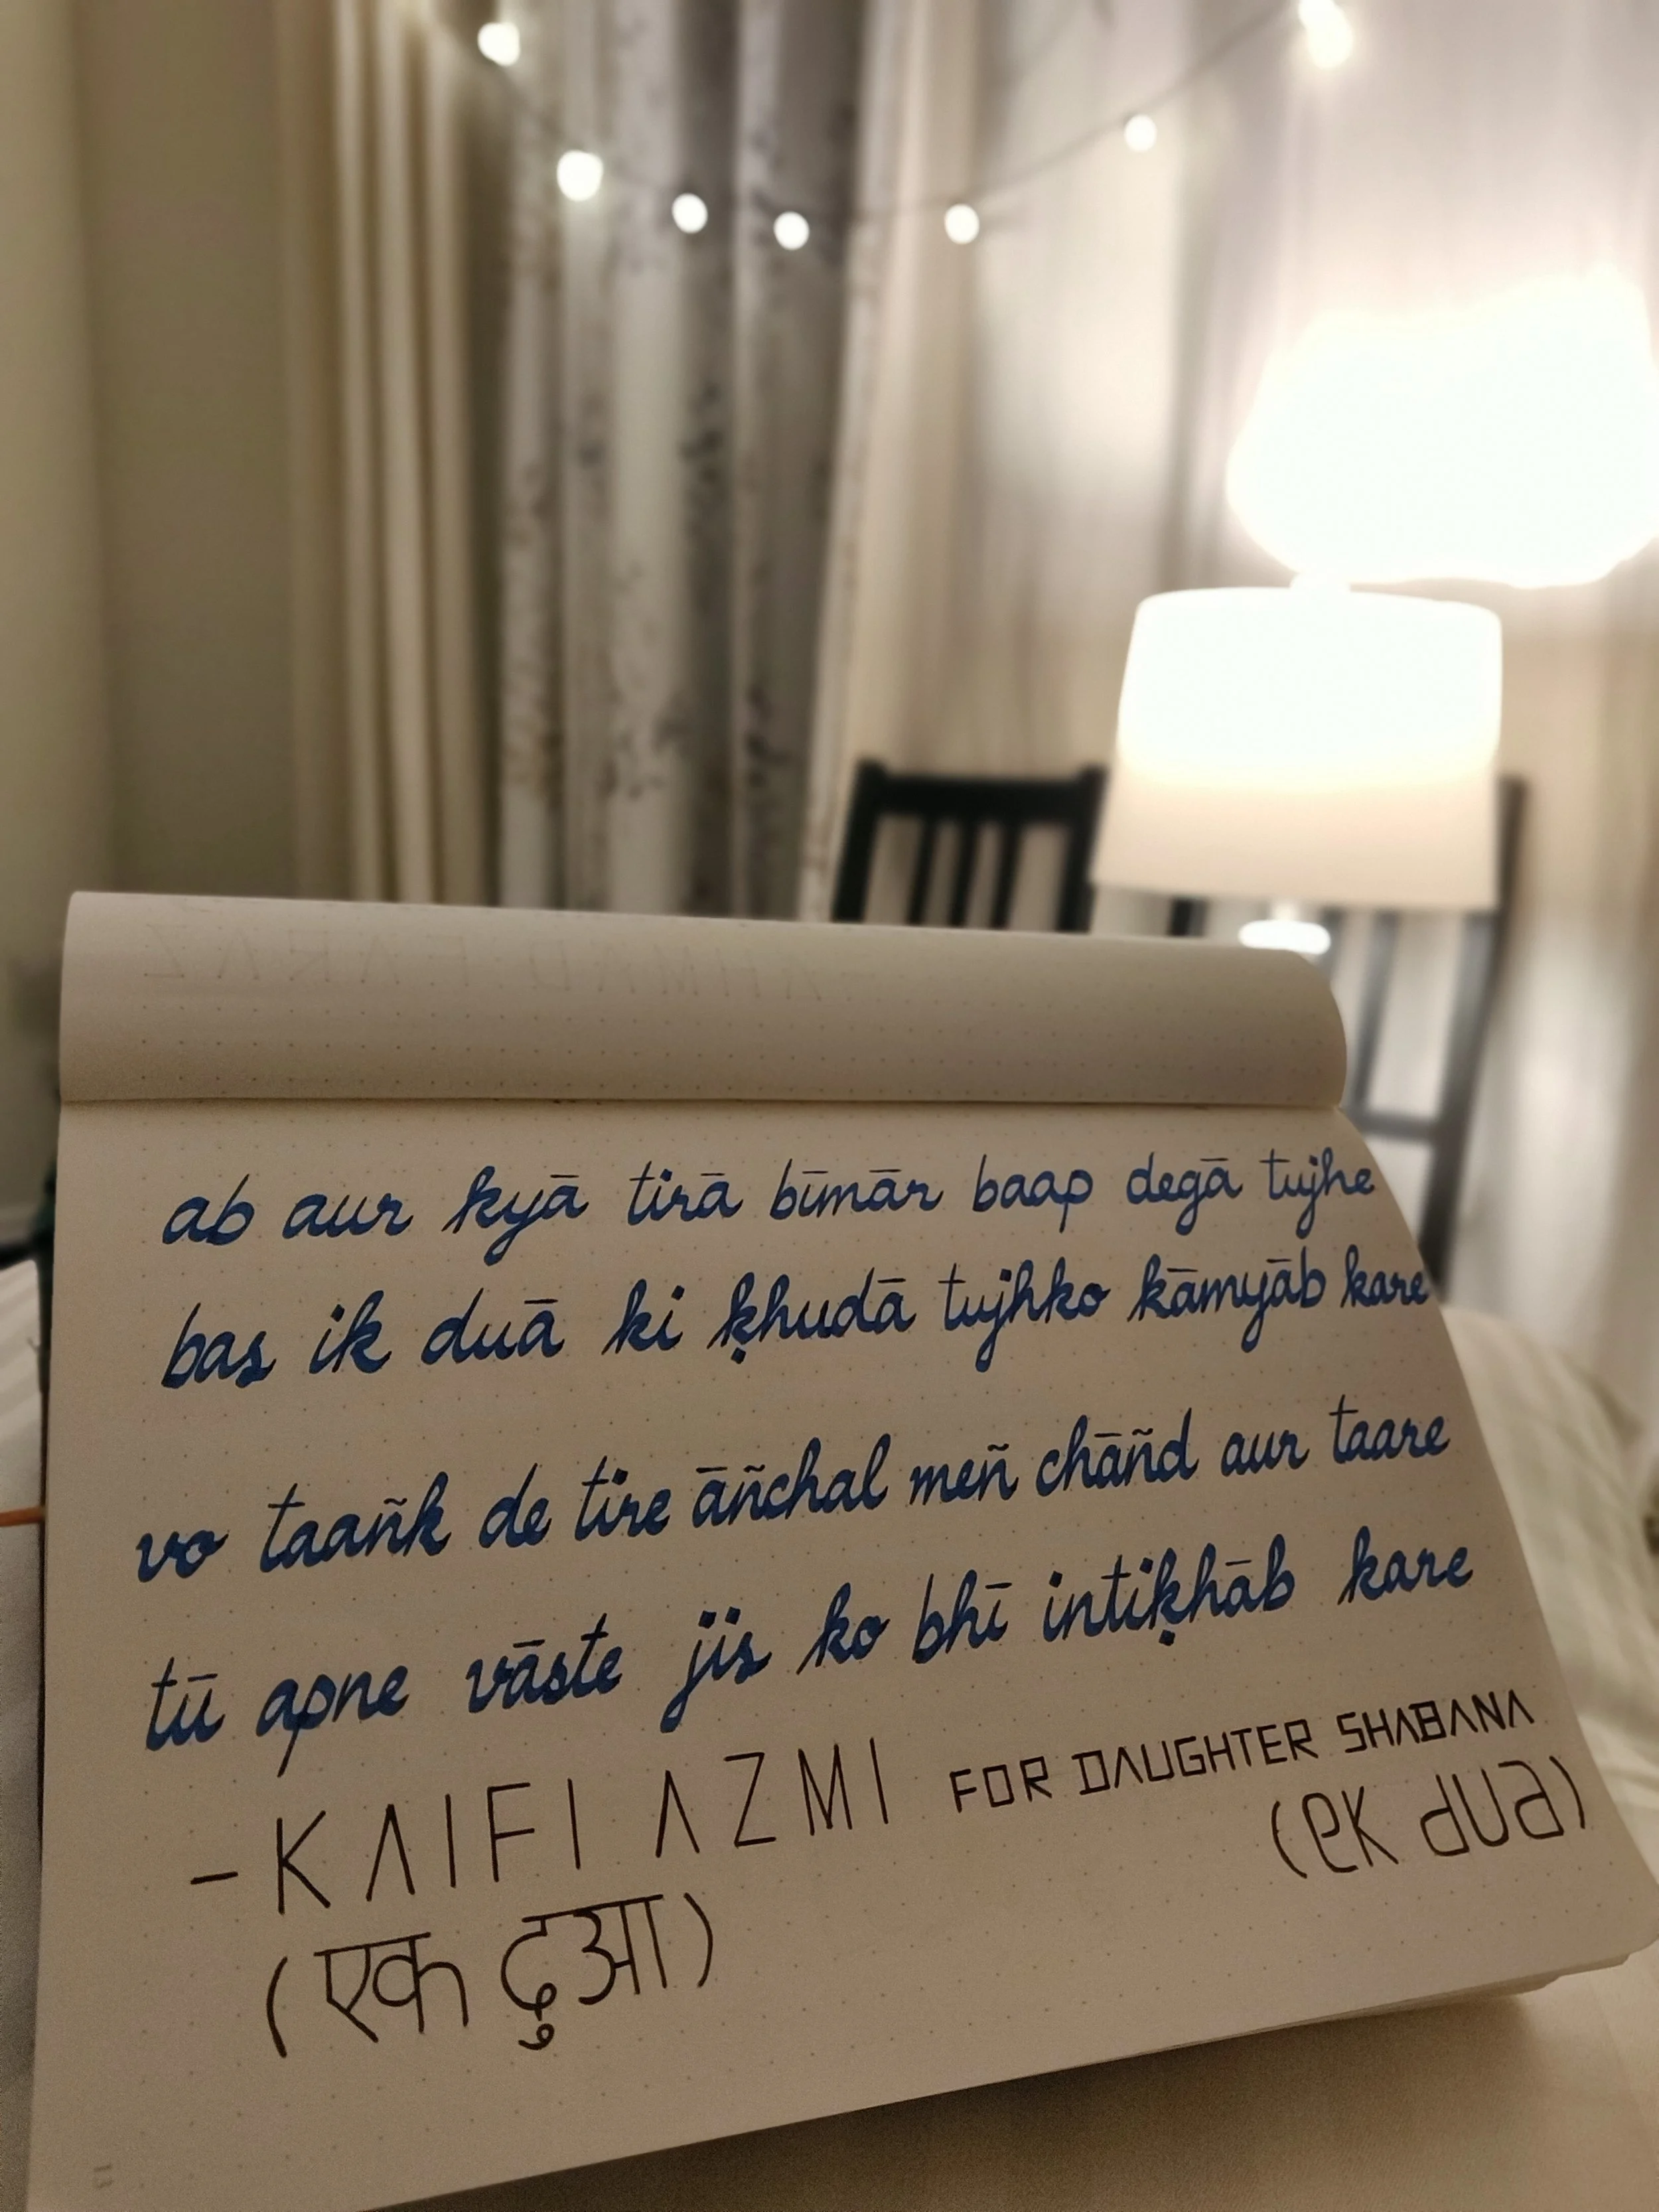 ab aur kyā tirā bīmār baap degā tujhe
bas ik duā ki ḳhudā tujhko kāmyāb kare
vo taañk de tire āñchal meñ chāñd aur taare
tū apne vāste jis ko bhī intiḳhāb kare
- KAIFI AZMI FOR DAUGHTER SHABANA
(ek dua)
(एक दुआ)